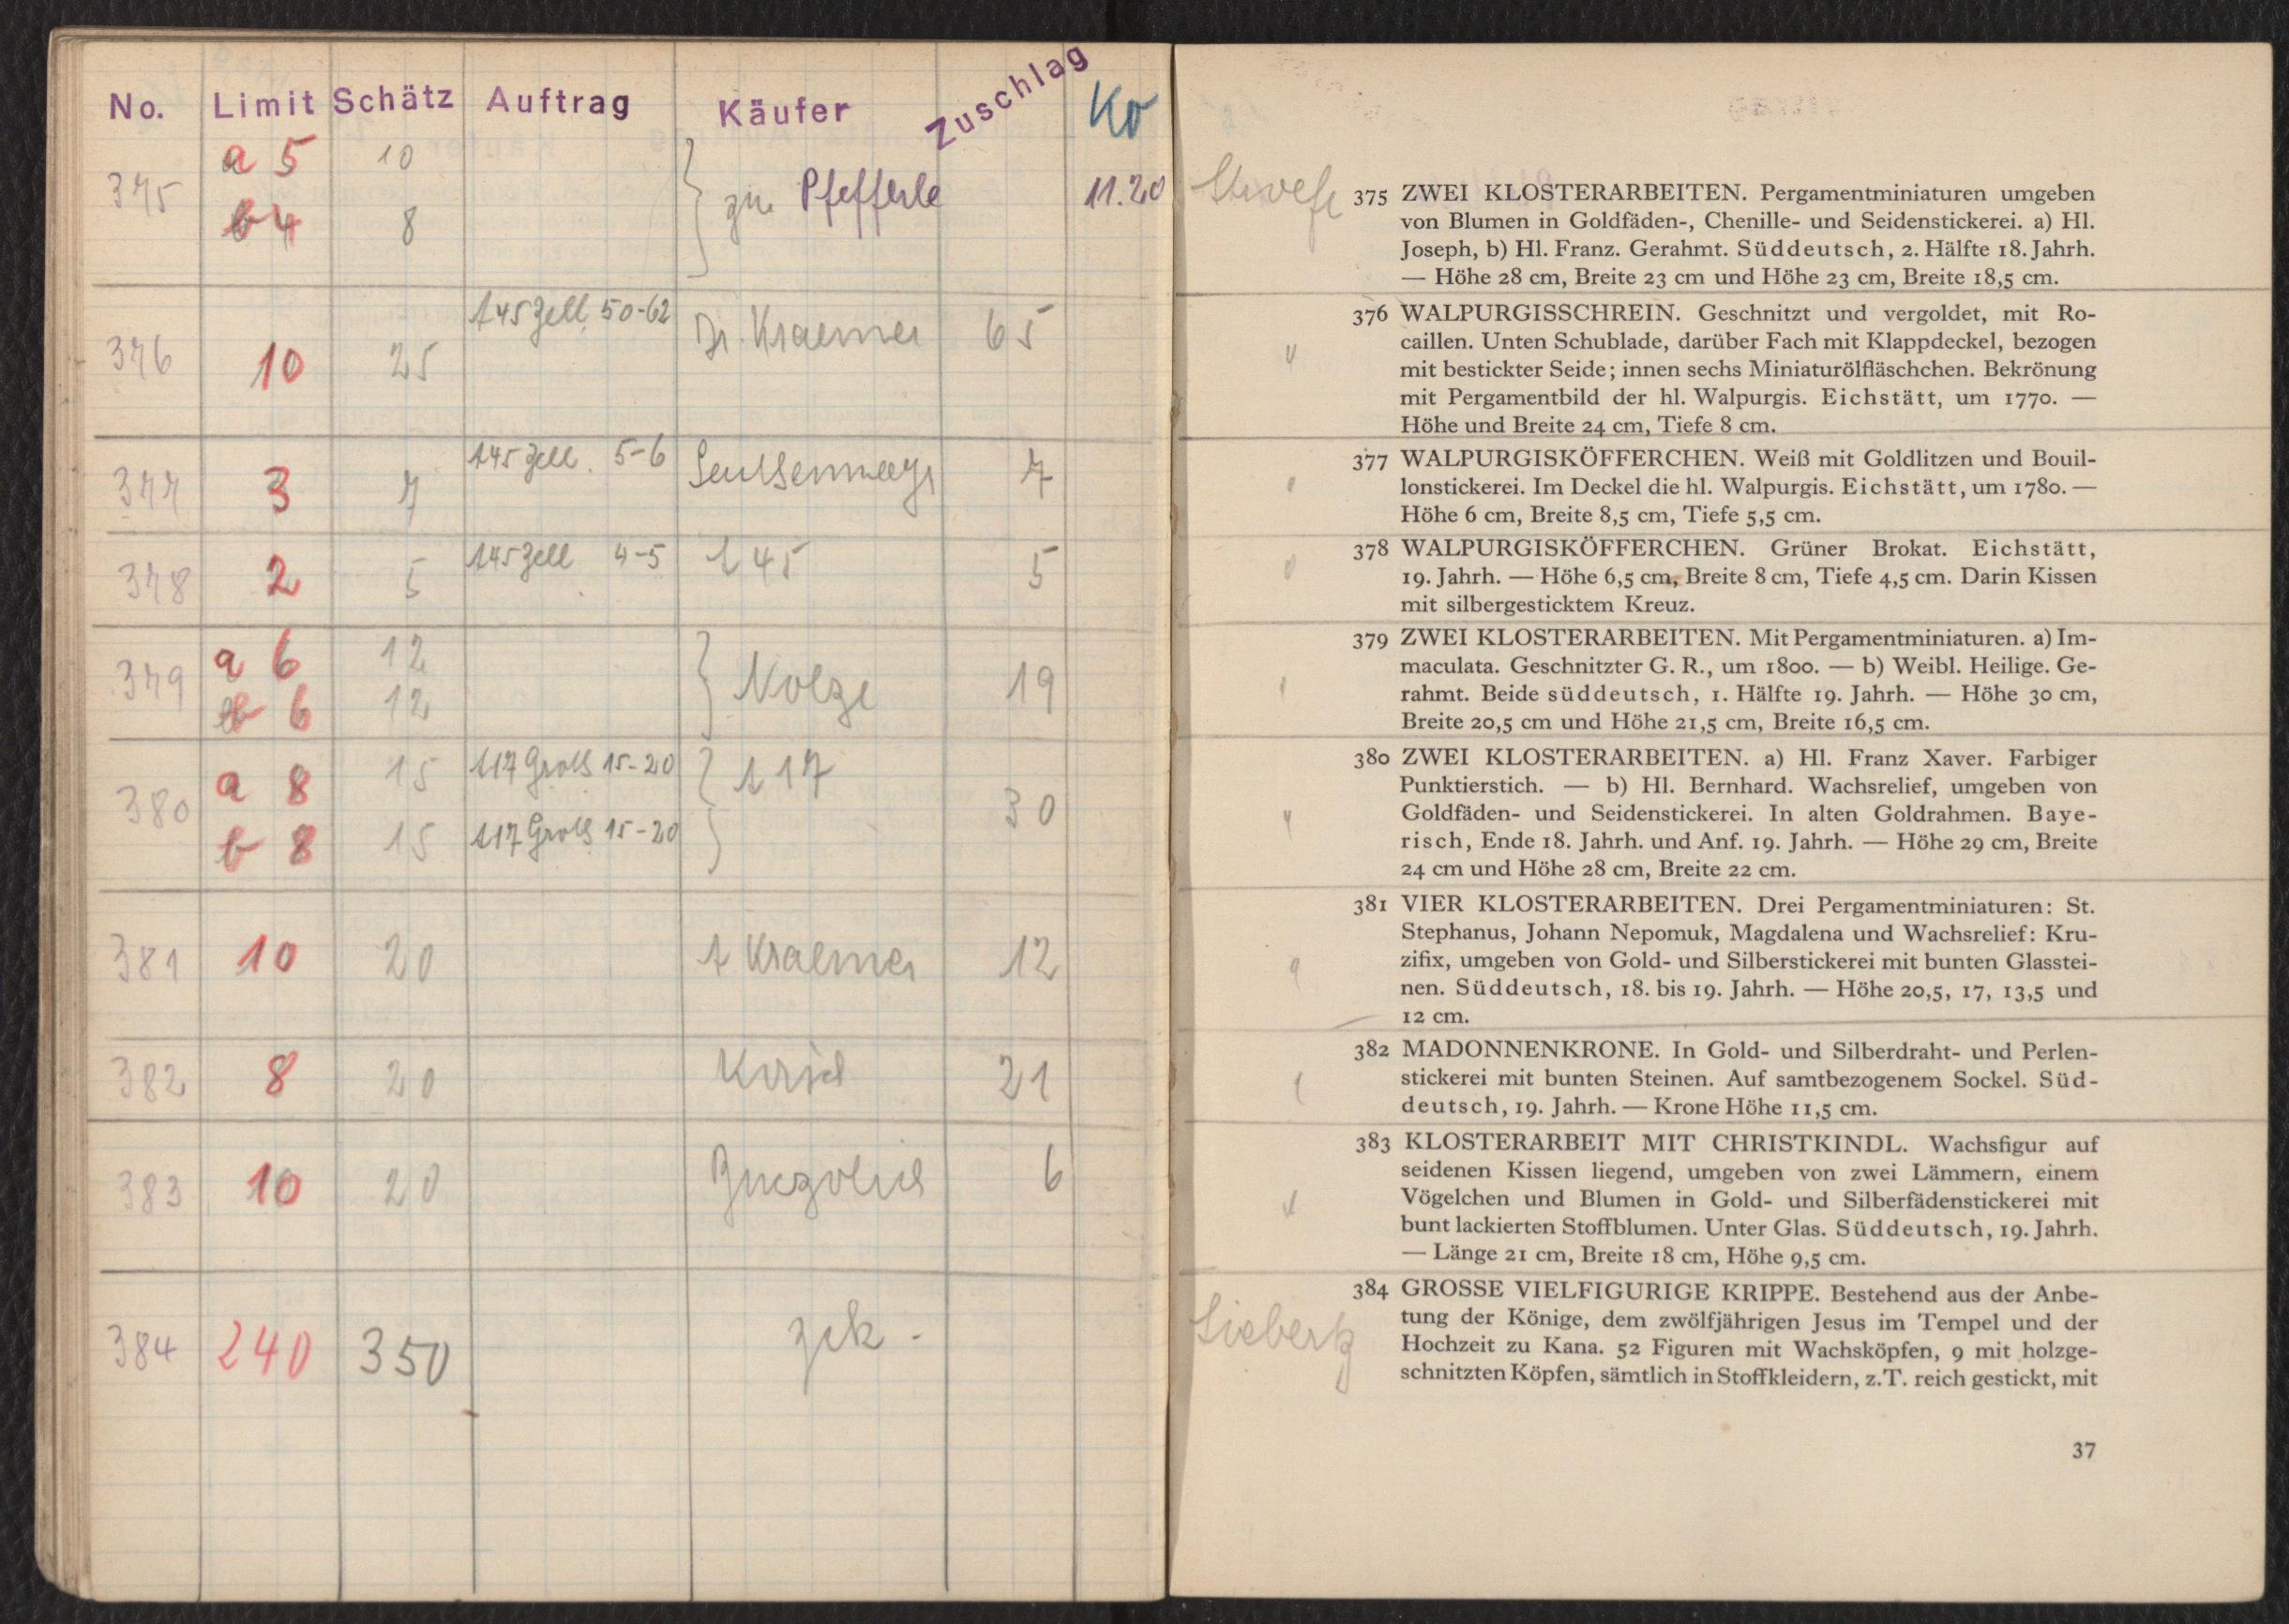 No. Limit Schätz Auftrag Käufer Zuschlag Ko
375 a 5 10 Pfefferle 11.20
b 4 8
376 10 25 A45 Zell 50-62 Dr. Kraemer 65
377 3 7 A45 Zell. 5-6 7
378 2 5 A45 Zell 4-5 A 45 5
379 a 6 12 Nolze 19
b 6 12
380 a 8 15 A17 Groll 15-20 A 17 30
b 8 15 A17 Groll 15-20
381 10 20 A Kraemer 12
382 8 20 21
383 10 20 6
384 240 350 zck -
375 ZWEI KLOSTERARBEITEN. Pergamentminiaturen umgeben
von Blumen in Goldfäden-, Chenille- und Seidenstickerei. a) Hl.
Joseph, b) Hl. Franz. Gerahmt. Süddeutsch, 2. Hälfte 18. Jahrh.
— Höhe 28 cm, Breite 23 cm und Höhe 23 cm, Breite 18,5 cm.
376 WALPURGISSCHREIN. Geschnitzt und vergoldet, mit Ro-
caillen. Unten Schublade, darüber Fach mit Klappdeckel, bezogen
mit bestickter Seide; innen sechs Miniaturölfläschchen. Bekrönung
mit Pergamentbild der hl. Walpurgis. Eichstätt, um 1770. —
Höhe und Breite 24 cm, Tiefe 8 cm.
377 WALPURGISKÖFFERCHEN. Weiß mit Goldlitzen und Bouil-
lonstickerei. Im Deckel die hl. Walpurgis. Eichstätt, um 1780. —
Höhe 6 cm, Breite 8,5 cm, Tiefe 5,5 cm.
378 WALPURGISKÖFFERCHEN. Grüner Brokat. Eichstätt,
19. Jahrh. — Höhe 6,5 cm, Breite 8 cm, Tiefe 4,5 cm. Darin Kissen
mit silbergesticktem Kreuz.
379 ZWEI KLOSTERARBEITEN. Mit Pergamentminiaturen. a) Im-
maculata. Geschnitzter G. R., um 1800. — b) Weibl. Heilige. Ge-
rahmt. Beide süddeutsch, 1. Hälfte 19. Jahrh. — Höhe 30 cm,
Breite 20,5 cm und Höhe 21,5 cm, Breite 16,5 cm.
380 ZWEI KLOSTERARBEITEN. a) Hl. Franz Xaver. Farbiger
Punktierstich. — b) Hl. Bernhard. Wachsrelief, umgeben von
Goldfäden- und Seidenstickerei. In alten Goldrahmen. Baye-
risch, Ende 18. Jahrh. und Anf. 19. Jahrh. — Höhe 29 cm, Breite
24 cm und Höhe 28 cm, Breite 22 cm.
381 VIER KLOSTERARBEITEN. Drei Pergamentminiaturen: St.
Stephanus, Johann Nepomuk, Magdalena und Wachsrelief: Kru-
zifix, umgeben von Gold- und Silberstickerei mit bunten Glasstei-
nen. Süddeutsch, 18. bis 19. Jahrh. — Höhe 20,5, 17, 13,5 und
12 cm.
382 MADONNENKRONE. In Gold- und Silberdraht- und Perlen-
stickerei mit bunten Steinen. Auf samtbezogenem Sockel. Süd-
deutsch, 19. Jahrh. — Krone Höhe 11,5 cm.
383 KLOSTERARBEIT MIT CHRISTKINDL. Wachsfigur auf
seidenen Kissen liegend, umgeben von zwei Lämmern, einem
Vögelchen und Blumen in Gold- und Silberfädenstickerei mit
bunt lackierten Stoffblumen. Unter Glas. Süddeutsch, 19. Jahrh.
— Länge 21 cm, Breite 18 cm, Höhe 9,5 cm.
Siebertz
384 GROSSE VIELFIGURIGE KRIPPE. Bestehend aus der Anbe-
tung der Könige, dem zwölfjährigen Jesus im Tempel und der
Hochzeit zu Kana. 52 Figuren mit Wachsköpfen, 9 mit holzge-
schnitzten Köpfen, sämtlich in Stoffkleidern, z.T. reich gestickt, mit
37